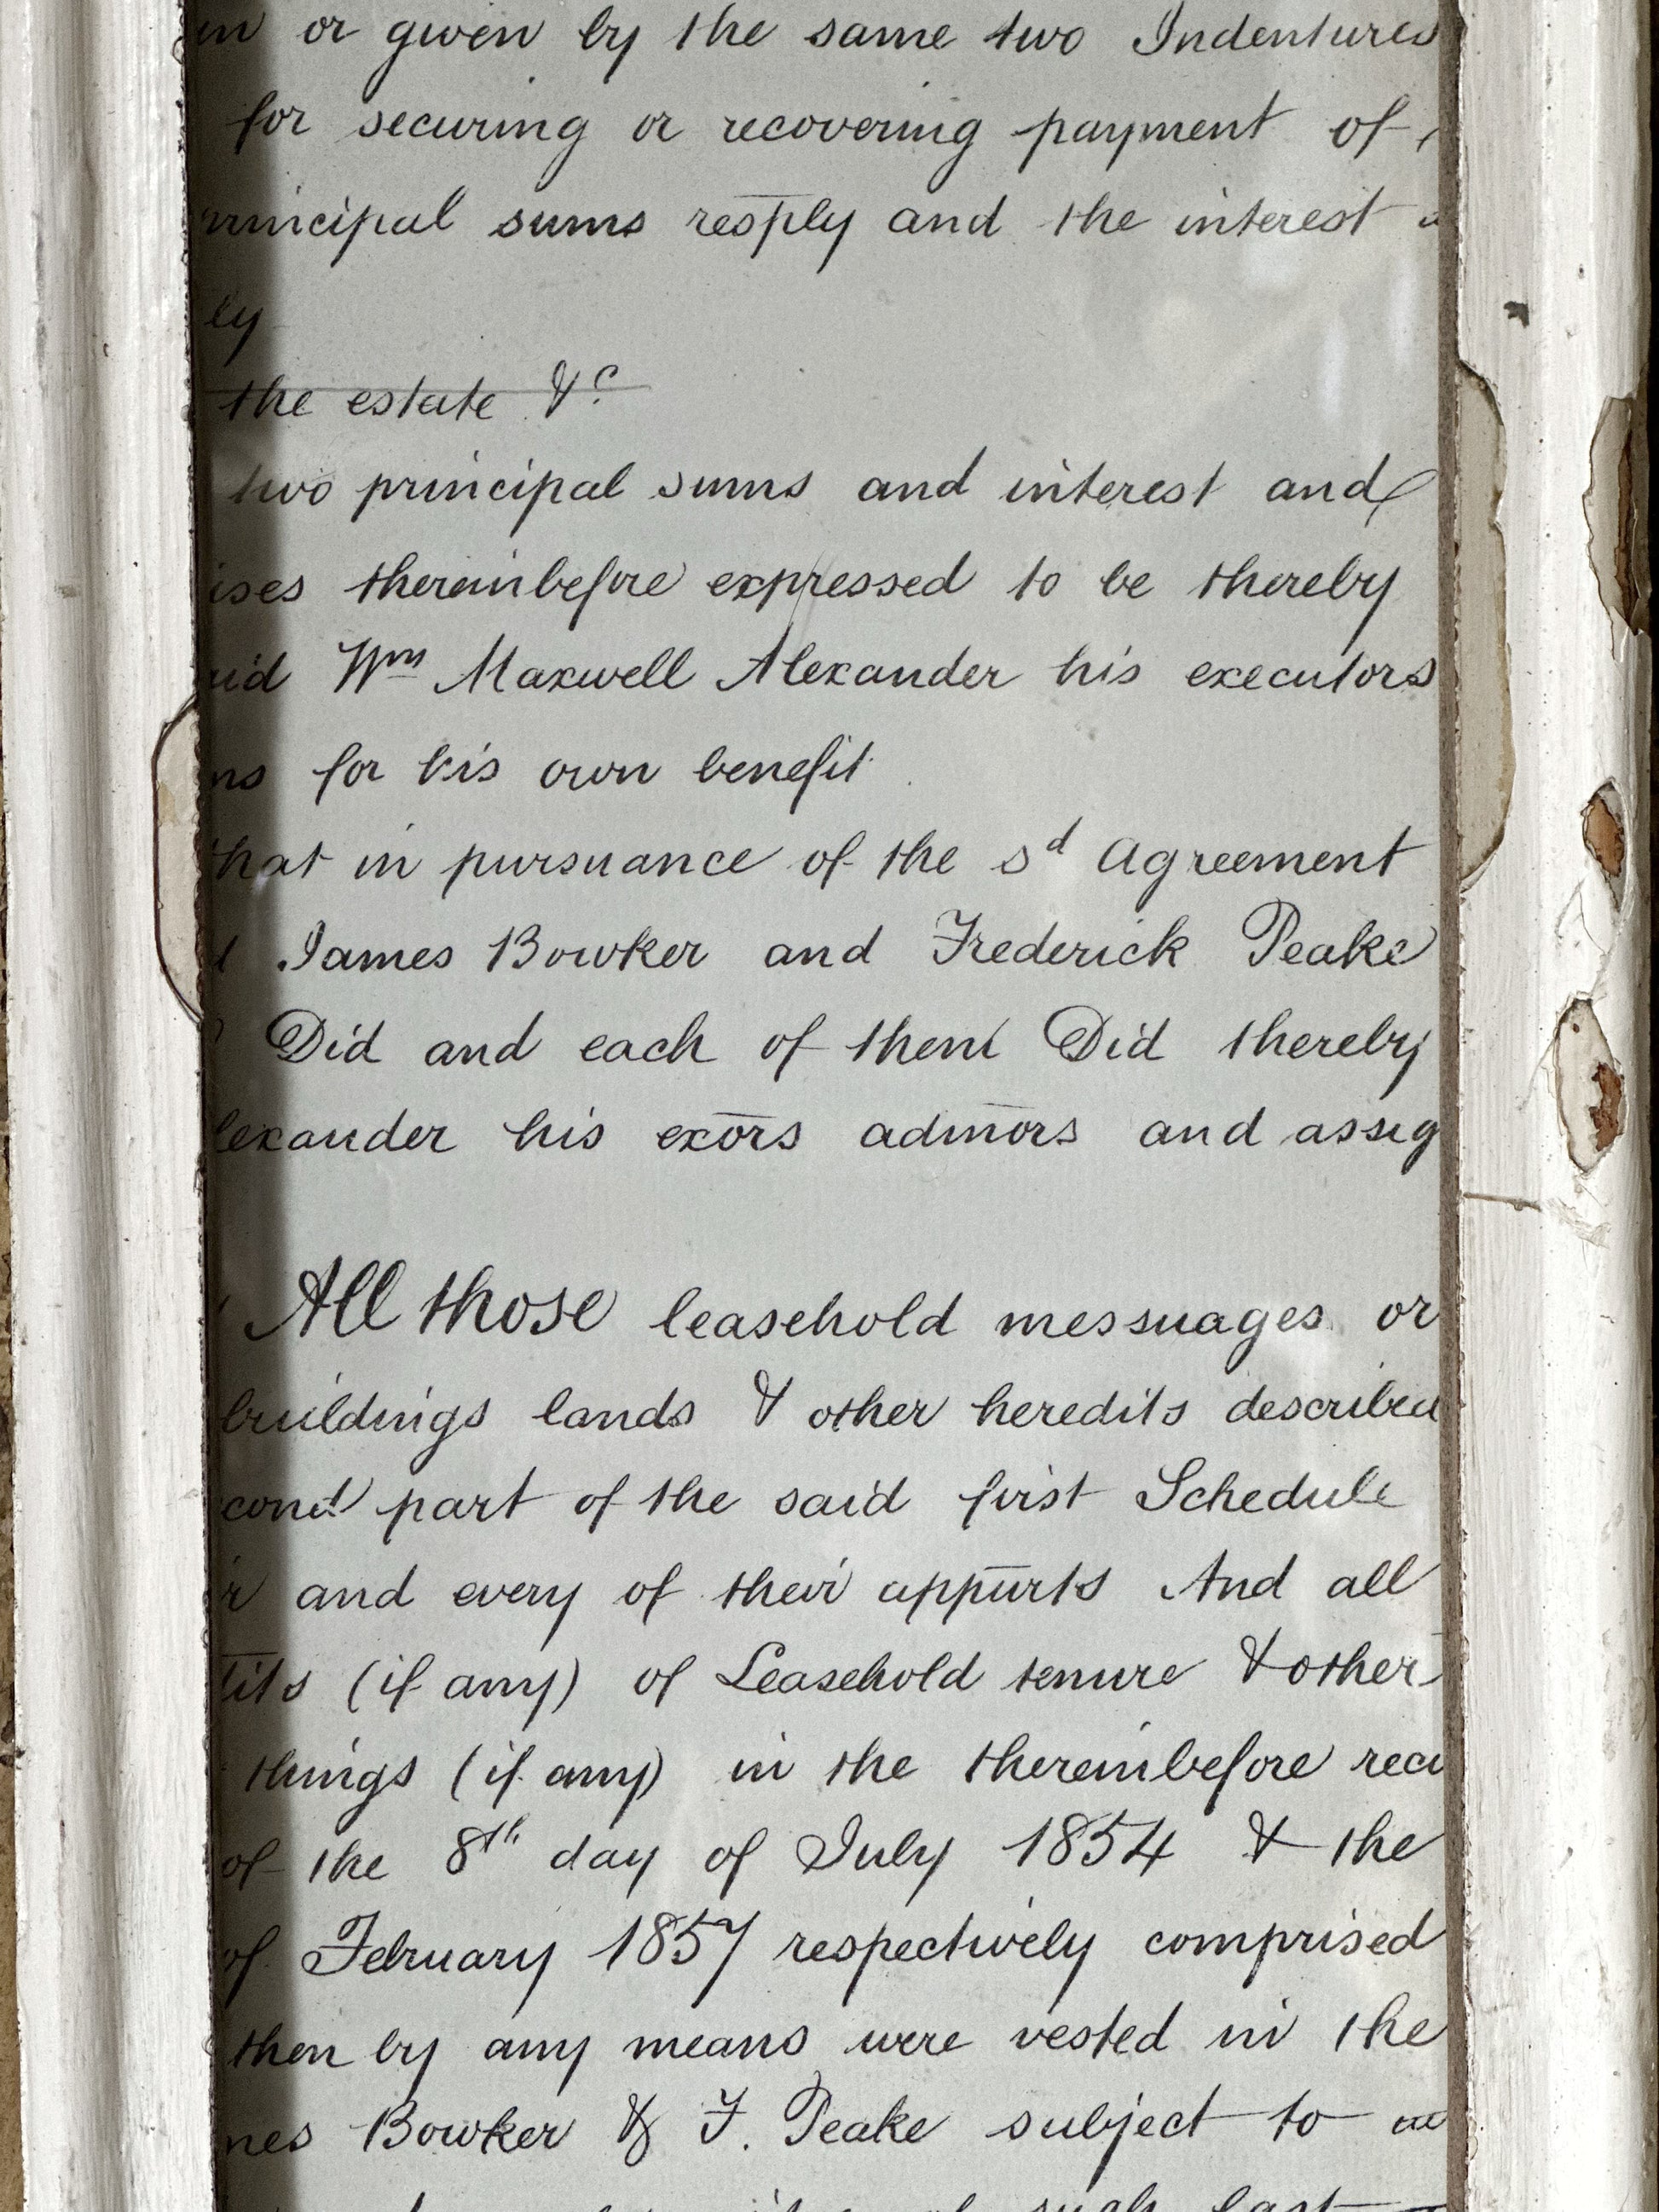 in or given by the same two Indentures
for securing or recovering payment of
principal sums resply and the interest
ly
the estate &c
two principal sums and interest and
ises thereinbefore expressed to be thereby
aid Wm Maxwell Alexander his executors
ns for his own benefit
that in pursuance of the sd Agreement
d James Bowker and Frederick Peake
Did and each of them Did thereby
lexander his exors admors and assig
All those leasehold messuages or
buildings lands & other heredits described
cond part of the said first Schedule
r and every of their appurts And all
tits (if any) of Leasehold tenure & other
things (if any) in the thereinbefore reci
of the 8th day of July 1854 & the
of February 1857 respectively comprised
then by any means were vested in the
mes Bowker & F. Peake subject to
such last